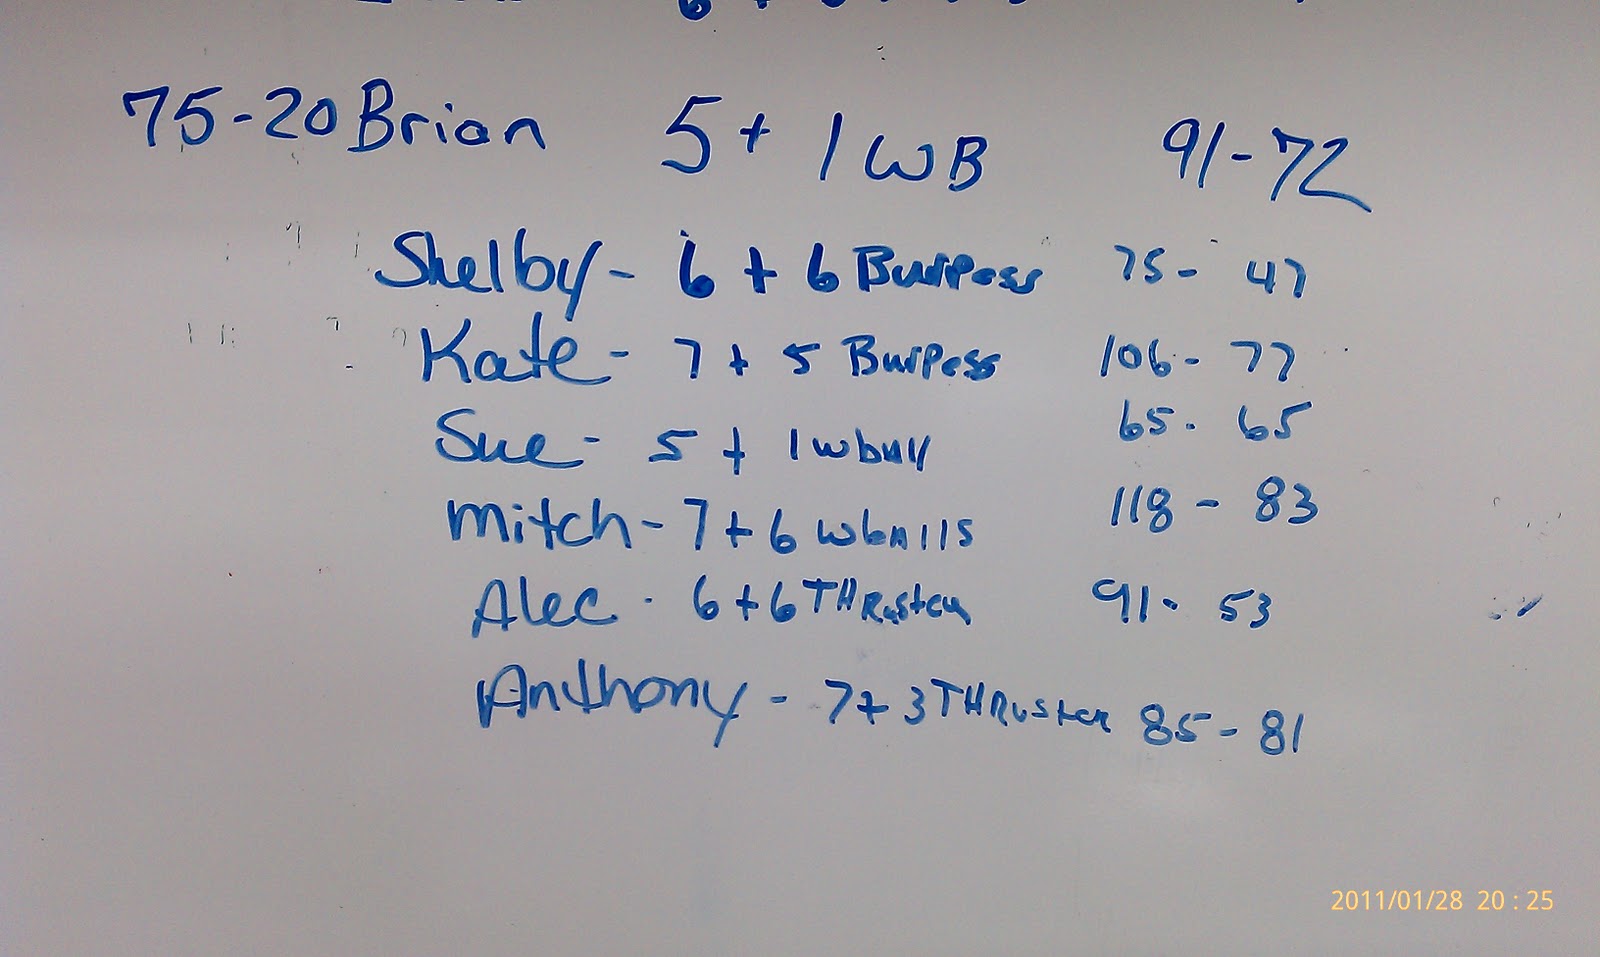 75-20 Brian 5+ 1 WB 91-72
Shelby - 6 + 6 Burpess 75- 47
Kate - 7 + 5 Burpess 106- 77
Sue - 5 + 1 wball 65- 65
mitch - 7 + 6 wballs 118 - 83
Alec - 6 + 6 THRuster 91- 53
Anthony - 7+ 3 THRuster 85-81
2011/01/28 20:25